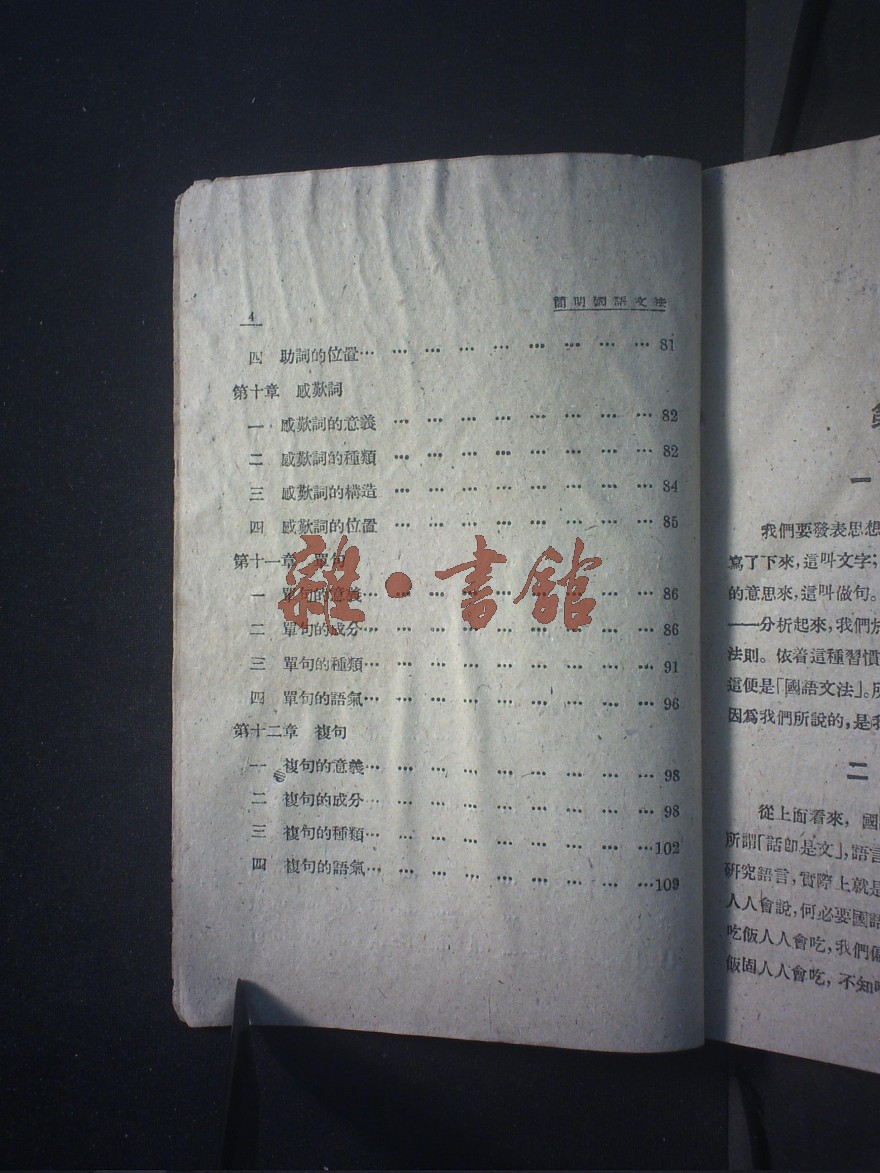 4
簡明國語文法
四 助詞的位置… … … … … … … … … 81
第十章 感歎詞
一 感歎詞的意義 … … … … … … … … 82
二 感歎詞的種類 … … … … … … … … 82
三 感歎詞的構造 … … … … … … … … 84
四 感歎詞的位置 … … … … … … … … 85
第十一章 單句
一 單句的意義… … … … … … … … … 86
二 單句的成分… … … … … … … … … 86
三 單句的種類… … … … … … … … … 91
四 單句的語氣… … … … … … … … … 96
第十二章 複句
一 複句的意義… … … … … … … … … 98
二 複句的成分… … … … … … … … … 98
三 複句的種類… … … … … … … … …102
四 複句的語氣… … … … … … … … …109
雜·書館
一
我們要發表思想
寫了下來,這叫文字;
的意思來,這叫做句。
——分析起來,我們於
法則。依着這種習慣
這便是「國語文法」。所
因爲我們所說的,是我
二
從上面看來,國
所謂「話卽是文」,語言
研究語言,實際上就是
人人會說,何必要國語
吃飯人人會吃,我們偏
飯固人人會吃,不知